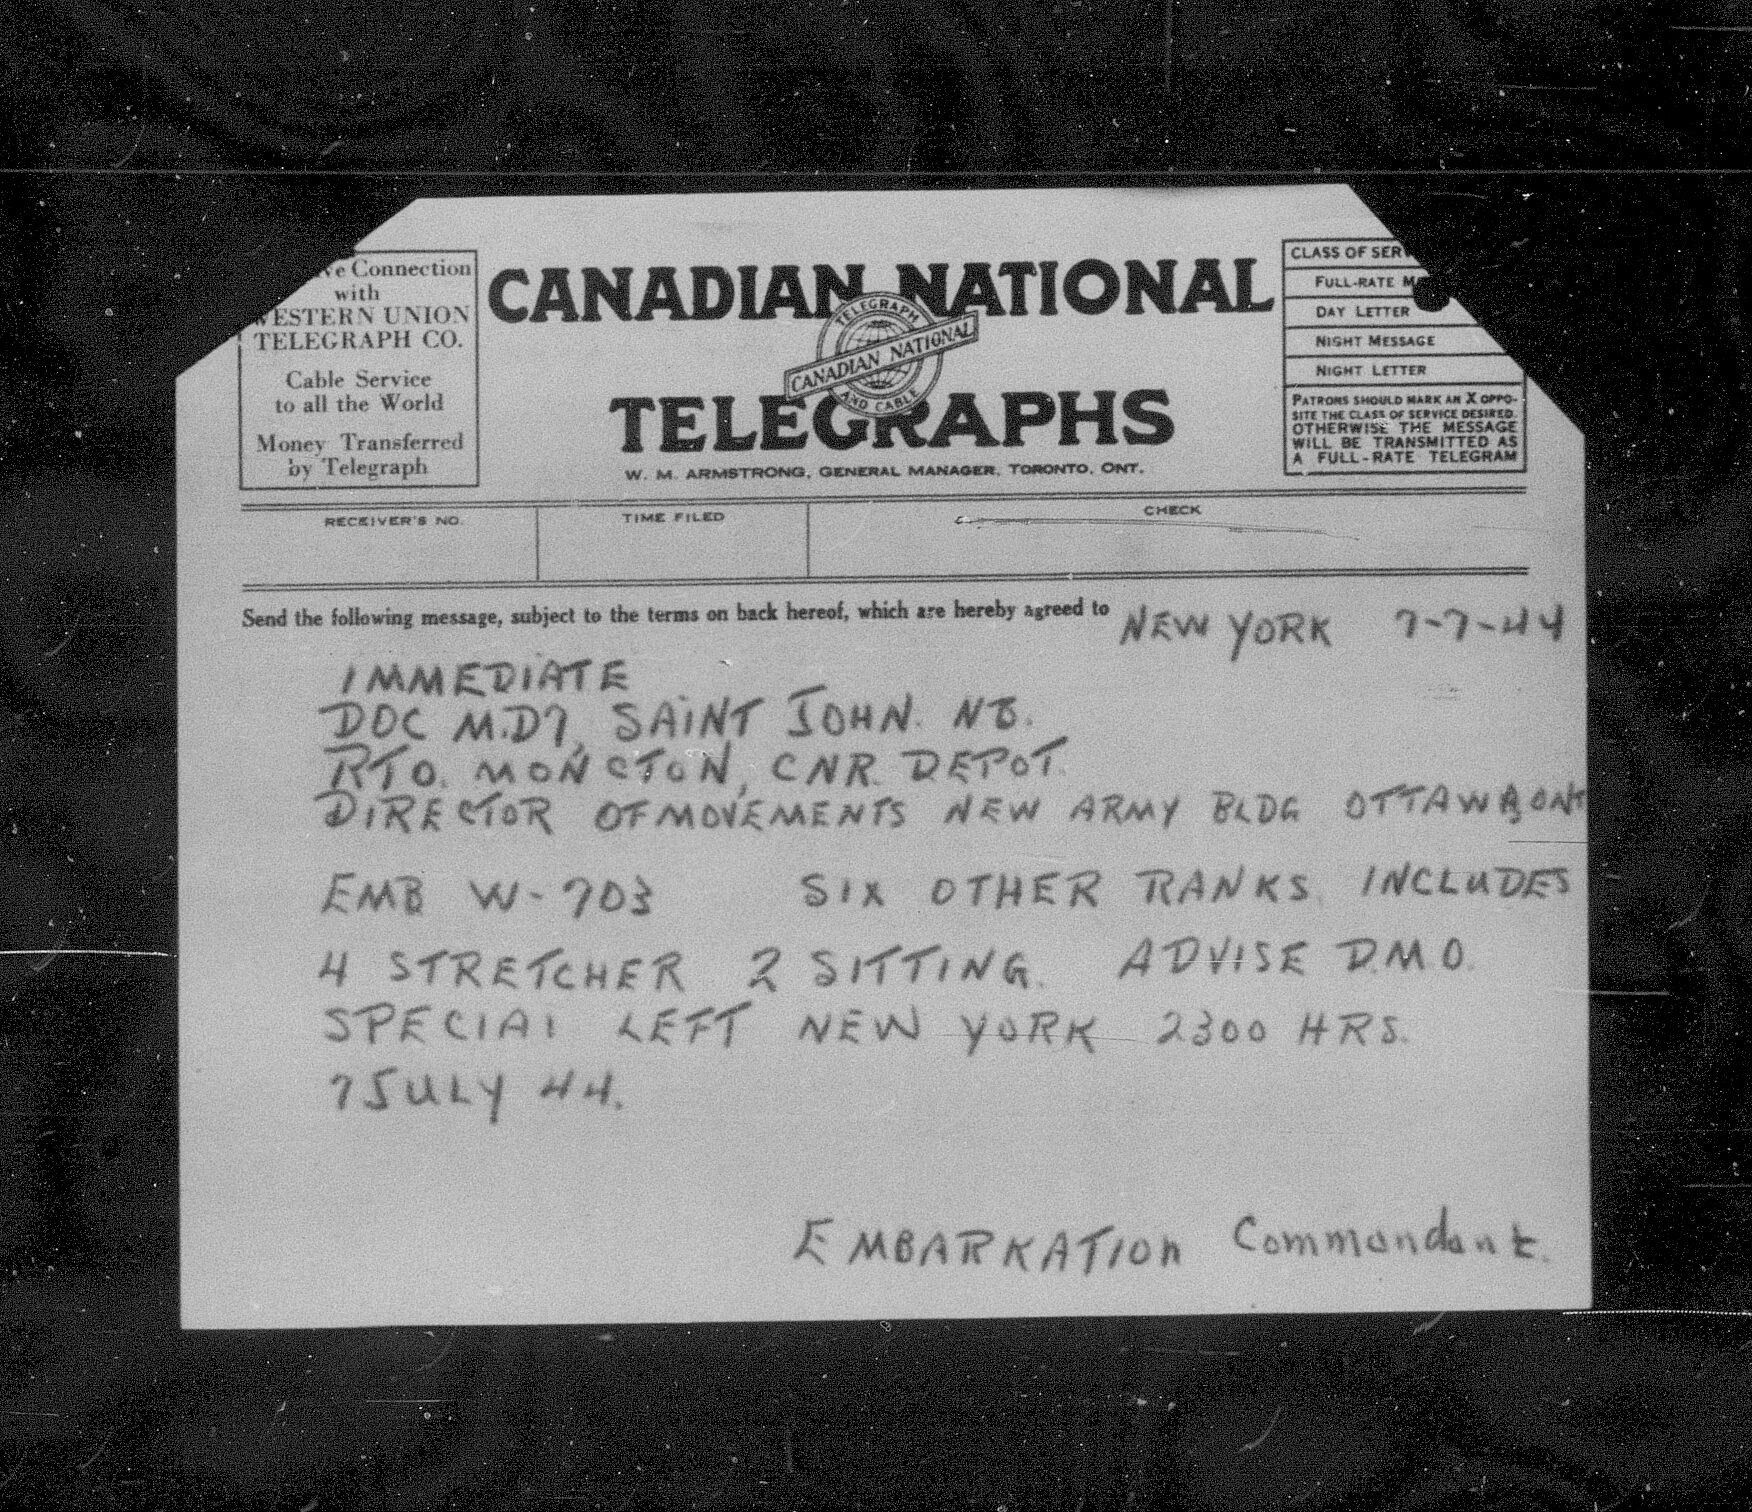 ve Connection
with
WESTERN UNION
TELEGRAPH CO.
Cable Service
to all the World
Money Transferred
by Telegraph
CANADIAN NATIONAL
TELEGRAPH
CANADIAN NATIONAL
AND CABLE
TELEGRAPHS
W. M. ARMSTRONG, GENERAL MANAGER, TORONTO, ONT.
CLASS OF SERV
FULL-RATE M
DAY LETTER
NIGHT MESSAGE
NIGHT LETTER
PATRONS SHOULD MARK AN X OPPO-
SITE THE CLASS OF SERVICE DESIRED.
OTHERWISE THE MESSAGE
WILL BE TRANSMITTED AS
A FULL-RATE TELEGRAM
RECEIVER'S NO. TIME FILED CHECK
Send the following message, subject to the terms on back hereof, which are hereby agreed to NEW YORK 7-7-44
IMMEDIATE
DOC M.D7, SAINT JOHN. NB.
RTO. MONCTON, CNR. DEPOT.
DIRECTOR OF MOVEMENTS NEW ARMY BLDG OTTAWA, ONT
EMB W-703 SIX OTHER RANKS. INCLUDES
4 STRETCHER 2 SITTING. ADVISE D.M.O.
SPECIAL LEFT NEW YORK 2300 HRS.
7 JULY 44.
EMBARKATION Commandant.